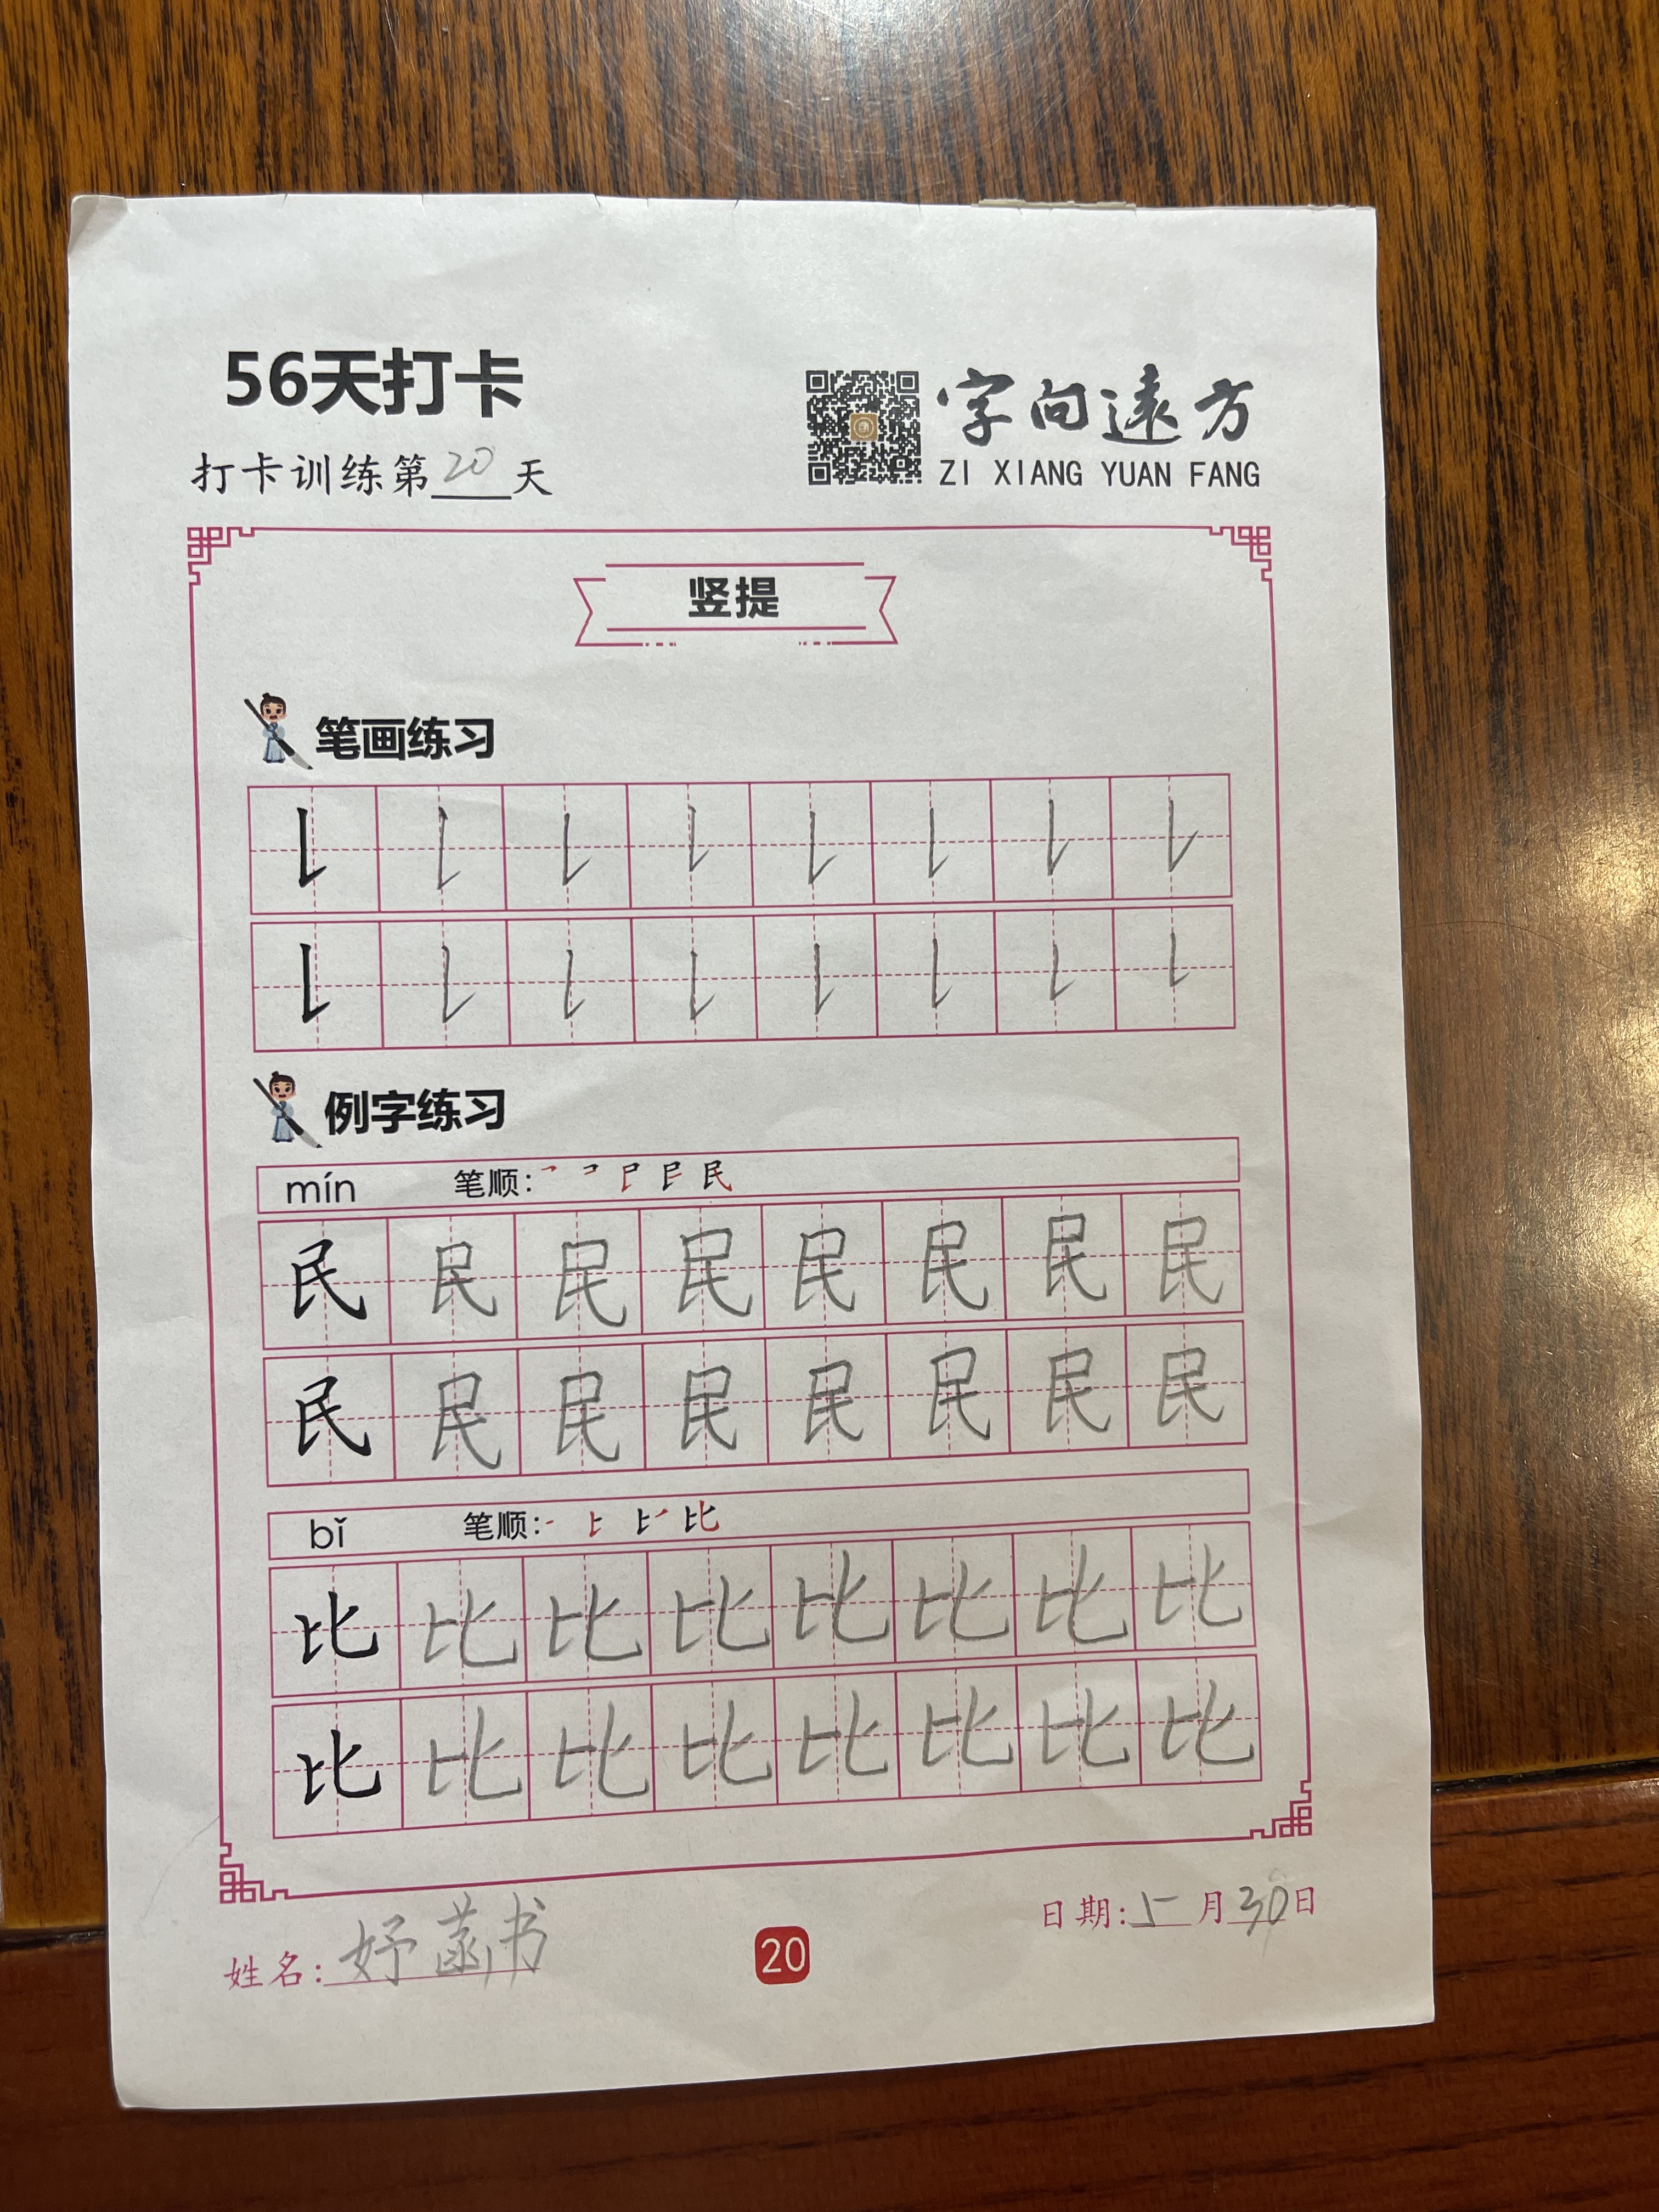 56天打卡
打卡训练第20天
字向遠方
ZI XIANG YUAN FANG
竖提
笔画练习
例字练习
mín 笔顺:
民 民 民 民 民 民 民 民
民 民 民 民 民 民 民 民
bǐ 笔顺:
比 比 比 比 比 比 比 比
比 比 比 比 比 比 比 比
姓名:
日期:5月30日
20